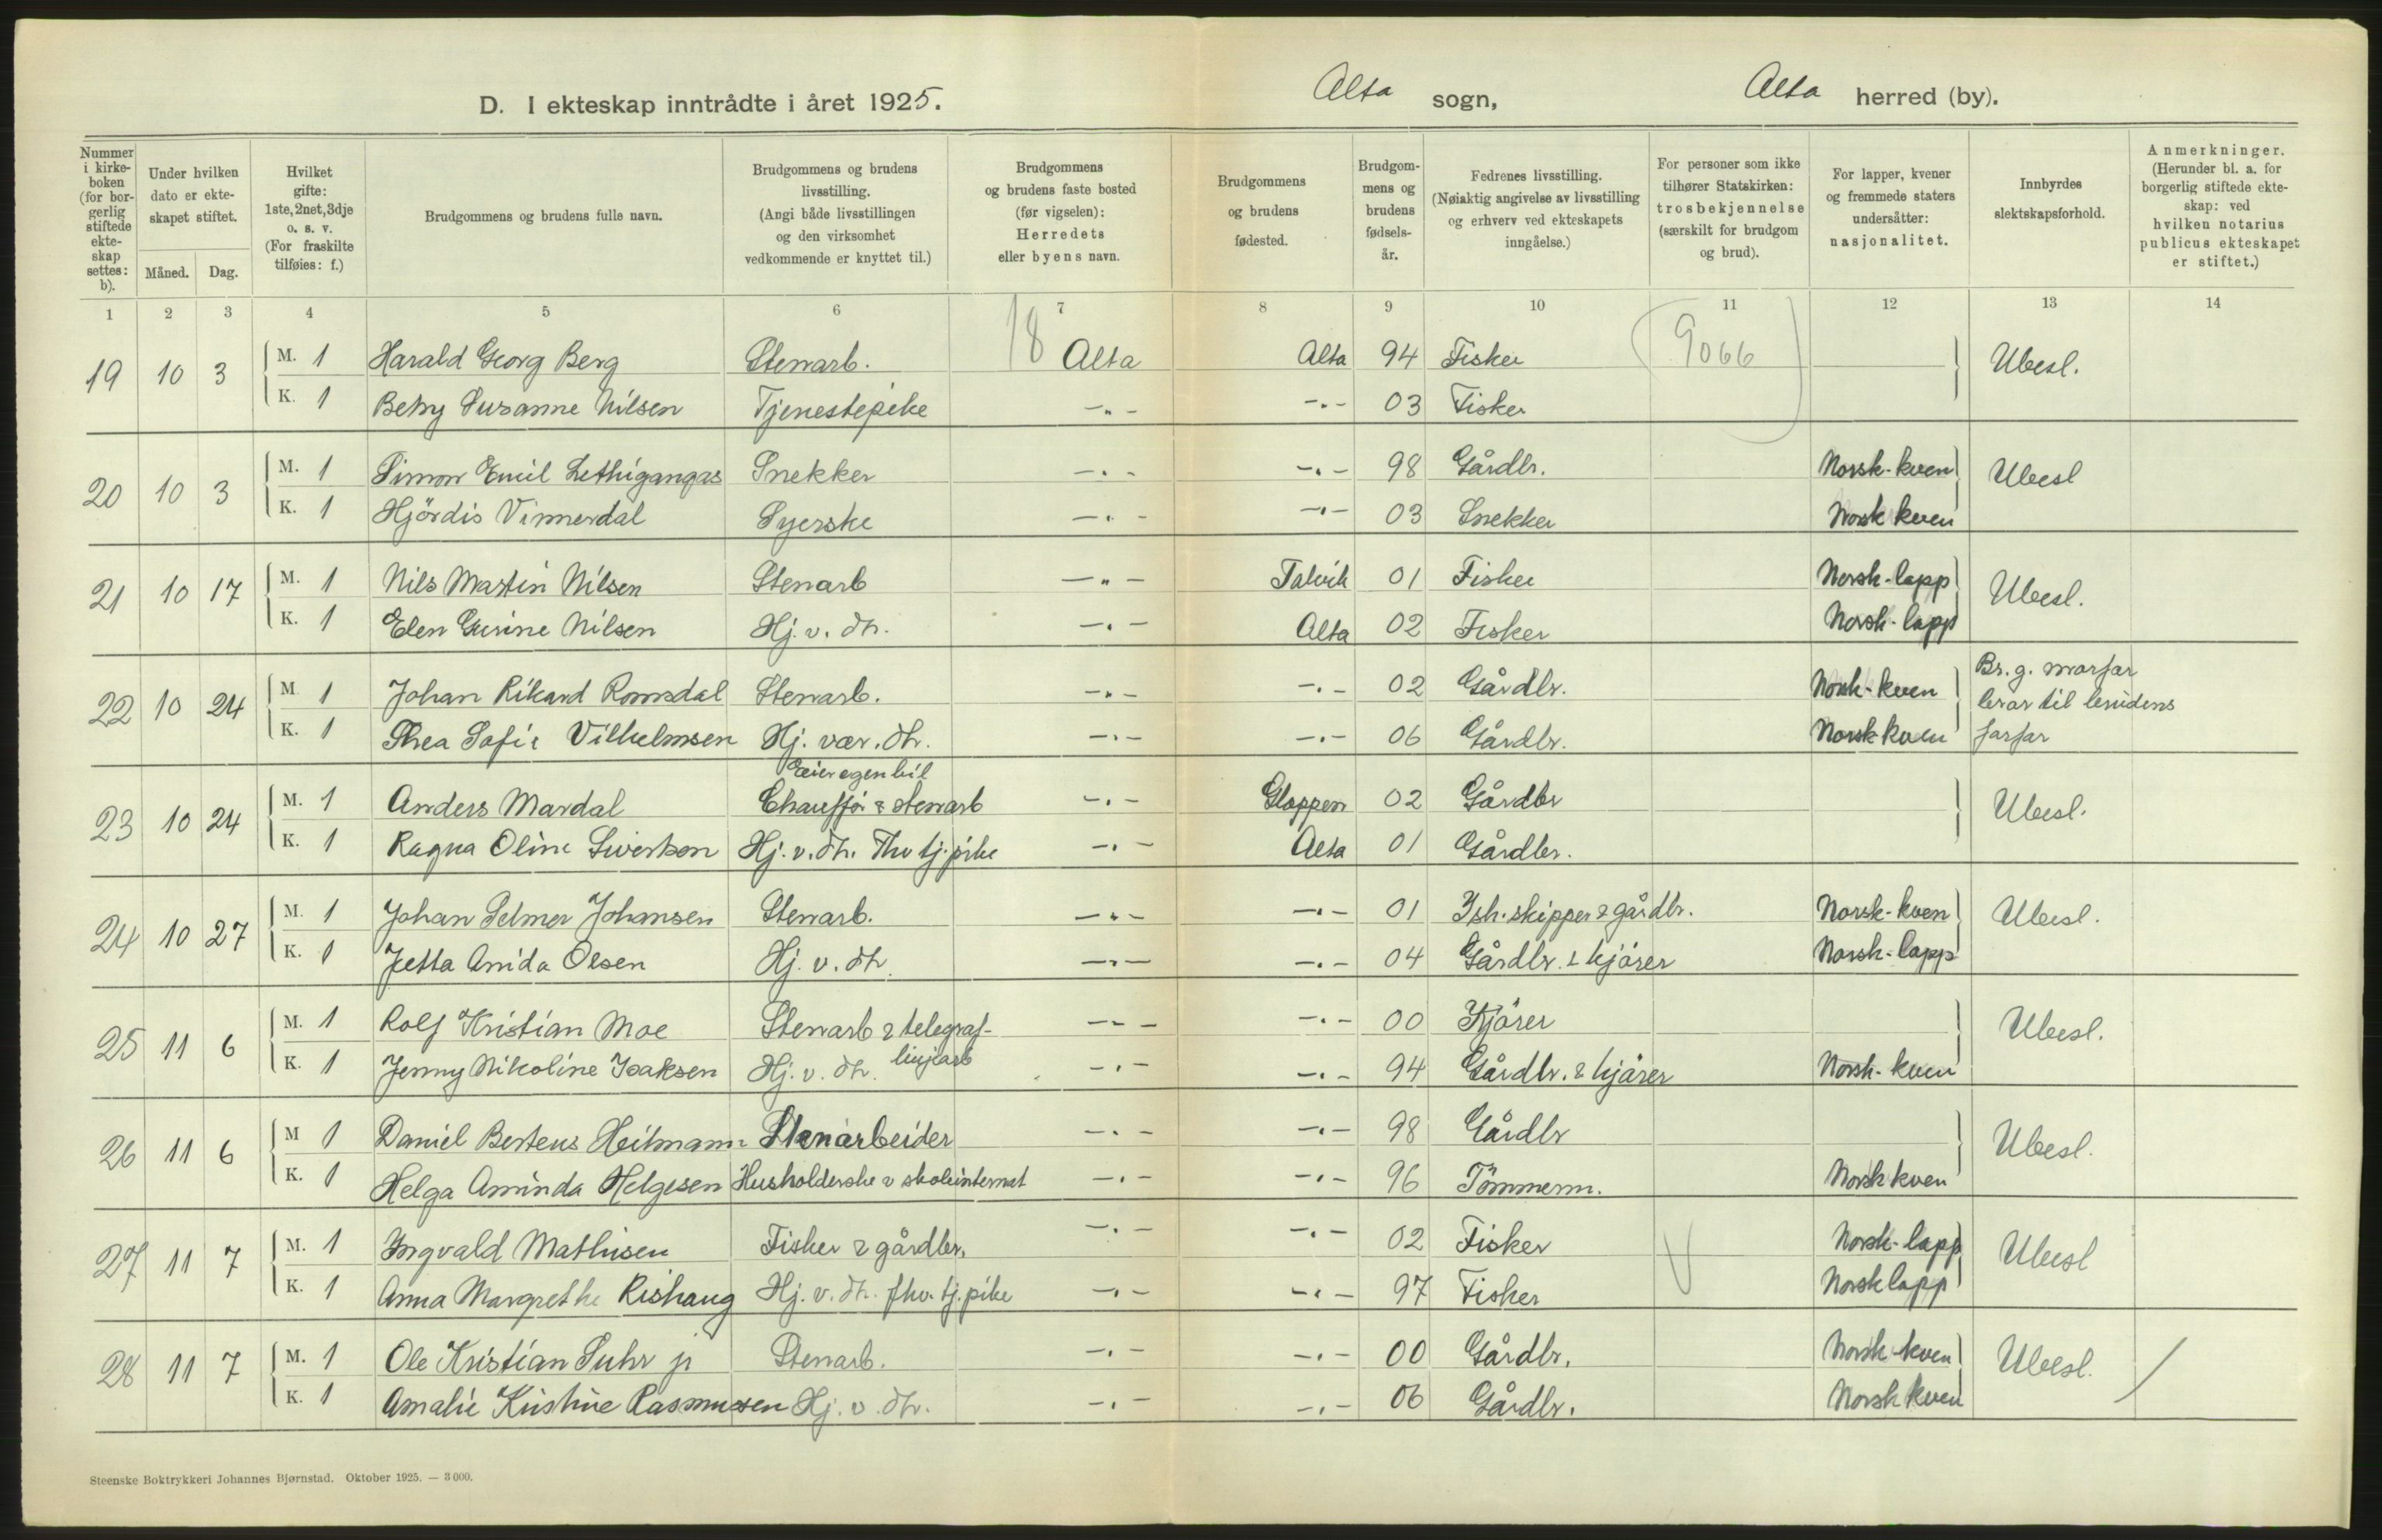 D. I ekteskap inntrådte i året 1925.
Alta sogn, Alta herred (by).
Nummer i kirke-boken (for bor-gerlig stiftede ekte-skap settes: b).
Under hvilken dato er ekte-skapet stiftet.
Måned. Dag.
Hvilket gifte: 1ste, 2net, 3dje o. s. v. (For fraskilte tilføies: f.)
Brudgommens og brudens fulle navn.
Brudgommens og brudens livsstilling. (Angi både livsstillingen og den virksomhet vedkommende er knyttet til.)
Brudgommens og brudens faste bosted (før vigselen): Herredets eller byens navn.
Brudgommens og brudens fødested.
Brudgom-mens og brudens fødsels-år.
Fedrenes livsstilling. (Nøiaktig angivelse av livsstilling og erhverv ved ekteskapets inngåelse.)
For personer som ikke tilhører Statskirken: trosbekjennelse (særskilt for brudgom og brud).
For lapper, kvener og fremmede staters undersåtter: nasjonalitet.
Innbyrdes slektskapsforhold.
Anmerkninger. (Herunder bl. a. for borgerlig stiftede ekte-skap: ved hvilken notarius publicus ekteskapet er stiftet.)
1 2 3 4 5 6 7 8 9 10 11 12 13 14
18 (9066)
19 10 3 M. 1 Harald Georg Berg Stenarb. Alta Alta 94 Fisker Ubesl.
K. 1 Betsy Susanne Nilsen Tjenestepike -"- -"- 03 Fisker
20 10 3 M. 1 Simon Emil Lethigangas Snekker -"- -"- 98 Gårdbr. Norsk-kven Ubesl
K. 1 Hjördis Vinnerdal Syerske -"- -"- 03 Snekker Norsk kven
21 10 17 M. 1 Nils Martin Nilsen Stenarb -"- Talvik 01 Fisker Norsk-lapp Ubesl.
K. 1 Elen Gurine Nilsen Hj. v. dh. -"- Alta 02 Fisker Norsk-lapp
22 10 24 M 1 Johan Rikard Romsdal Stenarb. -"- -"- 02 Gårdbr. Norsk-kven Br.g. morfar
bror til brudens
K. 1 Thea Sofie Vilhelmsen Hj. vær. dh. -"- -"- 06 Gårdbr. Norsk kven farfar
Eier egen bil
23 10 24 M. 1 Anders Mardal Chauffør & stenarb -"- Gloppen 02 Gårdbr Ubesl.
K. 1 Ragna Oline Sivertsen Hj. v. dh. Fhv tj.pike -"- Alta 01 Gårdbr.
24 10 27 M. 1 Johan Selmer Johansen Stenarb. -"- -"- 01 Ish.skipper & gårdbr. Norsk-kven Ubesl.
K. 1 Jetta Anida Olsen Hj. v. dh. -"- -"- 04 Gårdbr. & kjörer Norsk-lapp
25 11 6 M. 1 Rolf Kristian Moe Stenarb & telegraf- -"- -"- 00 Kjörer Ubesl.
linjearb
K. 1 Jenny Nikoline Isaksen Hj. v. dh. -"- -"- 94 Gårdbr. & kjörer Norsk-kven
26 11 6 M 1 Daniel Berteus Heitmann Stenarbeider -"- -"- 98 Gårdbr Ubesl.
K. 1 Helga Aminda Helgesen Husholderske v skoleinternat -"- -"- 96 Tömmerm. Norsk kven
27 11 7 M. 1 Ingvald Mathisen Fisker & gårdbr. -"- -"- 02 Fisker Norsk-lapp Ubesl
K. 1 Anna Margrethe Rishaug Hj. v. dh. fhv. tj.pike -"- -"- 97 Fisker Norsk lapp
28 11 7 M. 1 Ole Kristian Suhr jr Stenarb. -"- -"- 00 Gårdbr. Norsk-kven Ubesl.
K. 1 Amalie Kristine Rasmussen Hj. v. dh. -"- -"- 06 Gårdbr. Norsk kven
Steenske Boktrykkeri Johannes Bjørnstad. Oktober 1925. — 3 000.